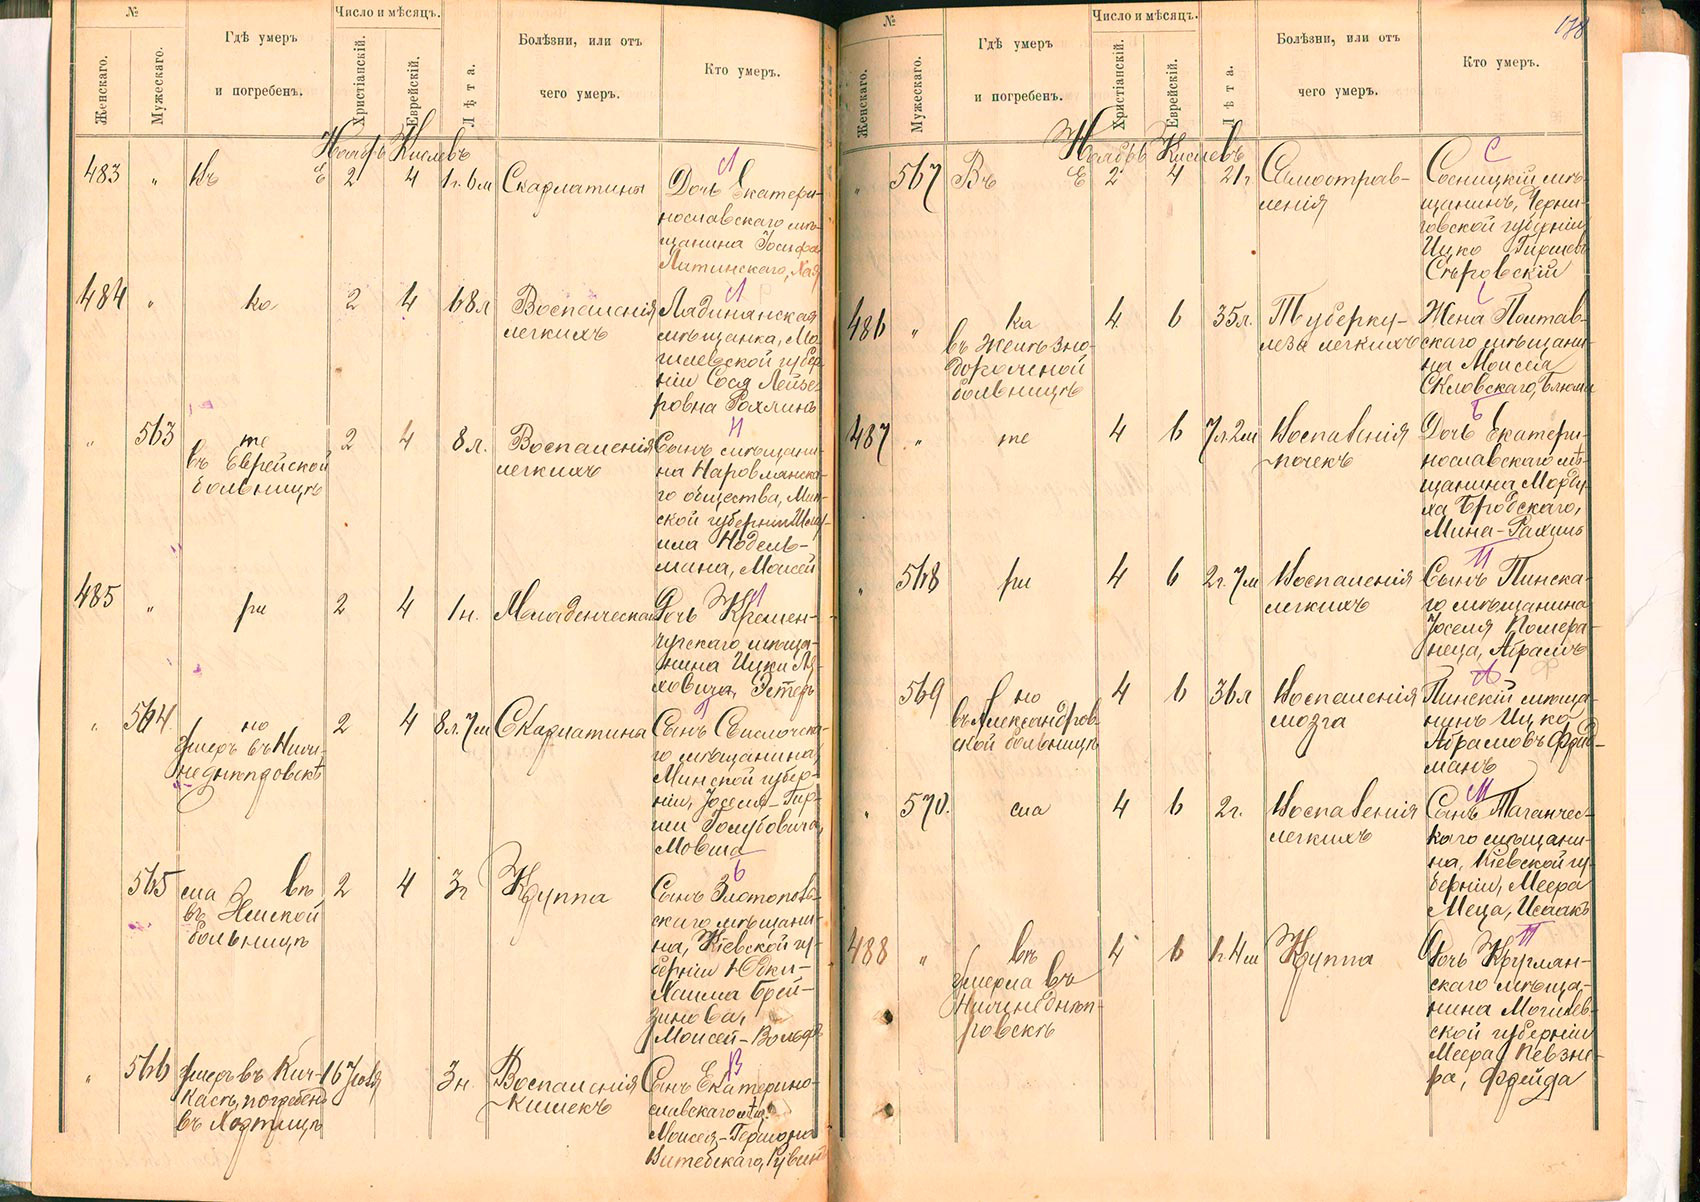 №
Женскаго.
Мужескаго.
Гдѣ умеръ
и погребенъ.
Число и мѣсяцъ.
Христіанскій.
Еврейскій.
Лѣта.
Болѣзни, или отъ
чего умеръ.
Кто умеръ.
Ноябрь Кислевъ
483 " Въ Е 2 4 1г. 6м Скарлатины
Дочь Екатери-
нославскаго мѣ-
щанина Іосифа
Латинскаго, Хая
484 " ка 2 4 68л Воспаленія
легкихъ
Лядинянская
мѣщанка, Мо-
гилевской губер-
ніи Сося Лейзе-
ровна Рохлинъ
" 563 те 2 4 8л. Воспаленія
въ Еврейской
больницѣ
легкихъ
Сынъ мѣщани-
на Наровлянска-
го общества, Мин-
ской губерніи
Нодель-
мана, Моисей
485 " ри 2 4 1н. Младенческая
Дочь Кремен-
чугскаго мѣща-
нина Ицки Ля-
ховича, Эстеръ
" 564 но 2 4 8л. 7м Скарлатина
Умеръ въ Нижне-
днѣпровскѣ
Сынъ Свислочска-
го мѣщанина,
Минской губер-
ніи, Іоселя-Гир-
ши Голубовича,
Мовша
565 сла въ 2 4 3г Круппа
въ Земской
больницѣ
Сынъ Златополь-
скаго мѣщани-
на, Кіевской гу-
берніи
Хаима Брей-
зинова,
Моисей-Вольфъ
" 566 Умеръ въ Кич- 16 Ноя 3н. Воспаленія
касѣ, погребенъ
въ Хортицѣ
кишекъ
Сынъ Екатерино-
славскаго мѣщ.
Моисея-Гершона
Витебскаго, Рувинъ
178
№
Женскаго.
Мужескаго.
Гдѣ умеръ
и погребенъ.
Число и мѣсяцъ.
Христіанскій.
Еврейскій.
Лѣта.
Болѣзни, или отъ
чего умеръ.
Кто умеръ.
Ноябрь Кислевъ
" 567 Въ Е 2 4 21г Самоотрав-
ленія
Сосницкій мѣ-
щанинъ, Черни-
говской губерніи
Ицко Гиршевъ
Стѣровскій
486 " ка 4 6 35л. Туберку-
въ Желѣзно-
дорожной
больницѣ
леза легкихъ
Жена Полтав-
скаго мѣщани-
на Моисея
Скловскаго, Блюма
487 " те 4 6 7л. 2м Воспаленія
почекъ
Дочь Екатери-
нославскаго мѣ-
щанина Морду-
ха Бродскаго,
Мина-Рахиль
" 568 ри 4 6 2г. 7м Воспаленія
легкихъ
Сынъ Пинска-
го мѣщанина
Іоселя Помера-
неца, Абрамъ
569 но 4 6 36л Воспаленія
въ Александров-
ской больницѣ
мозга
Пинскій мѣща-
нинъ Ицко
Абрамовъ Фрид-
манъ
" 570. сла 4 6 2г. Воспаленія
легкихъ
Сынъ Таганчес-
каго мѣщани-
на, Кіевской гу-
берніи, Меера
Меца, Исаакъ
488 " въ 4 6 1г. 4м Круппа
Умерла въ
Нижнеднѣп-
ровскѣ
Дочь Круглян-
скаго мѣща-
нина Могилев-
ской губерніи
Меера Певзне-
ра, Фрейда